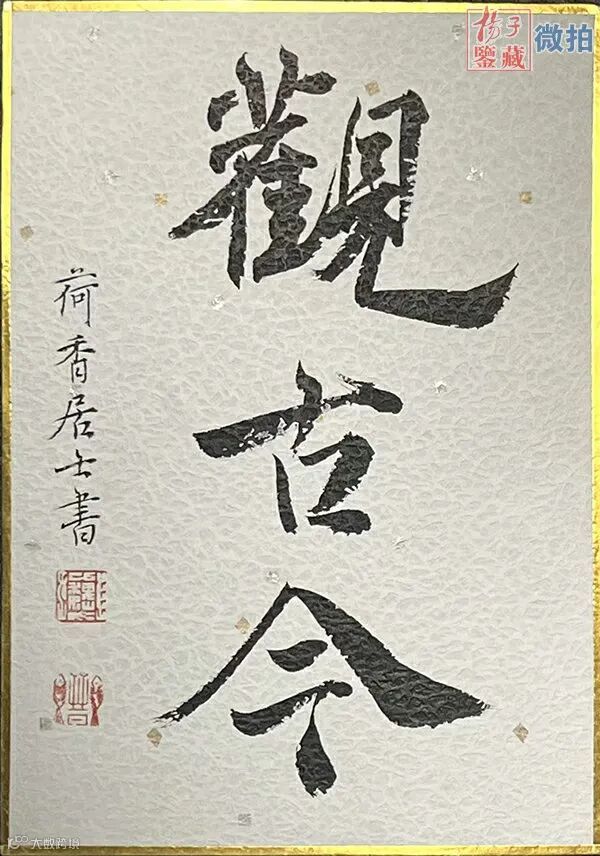 觀古今
荷香居士書
揚子
鑒藏
微拍
大数跨境